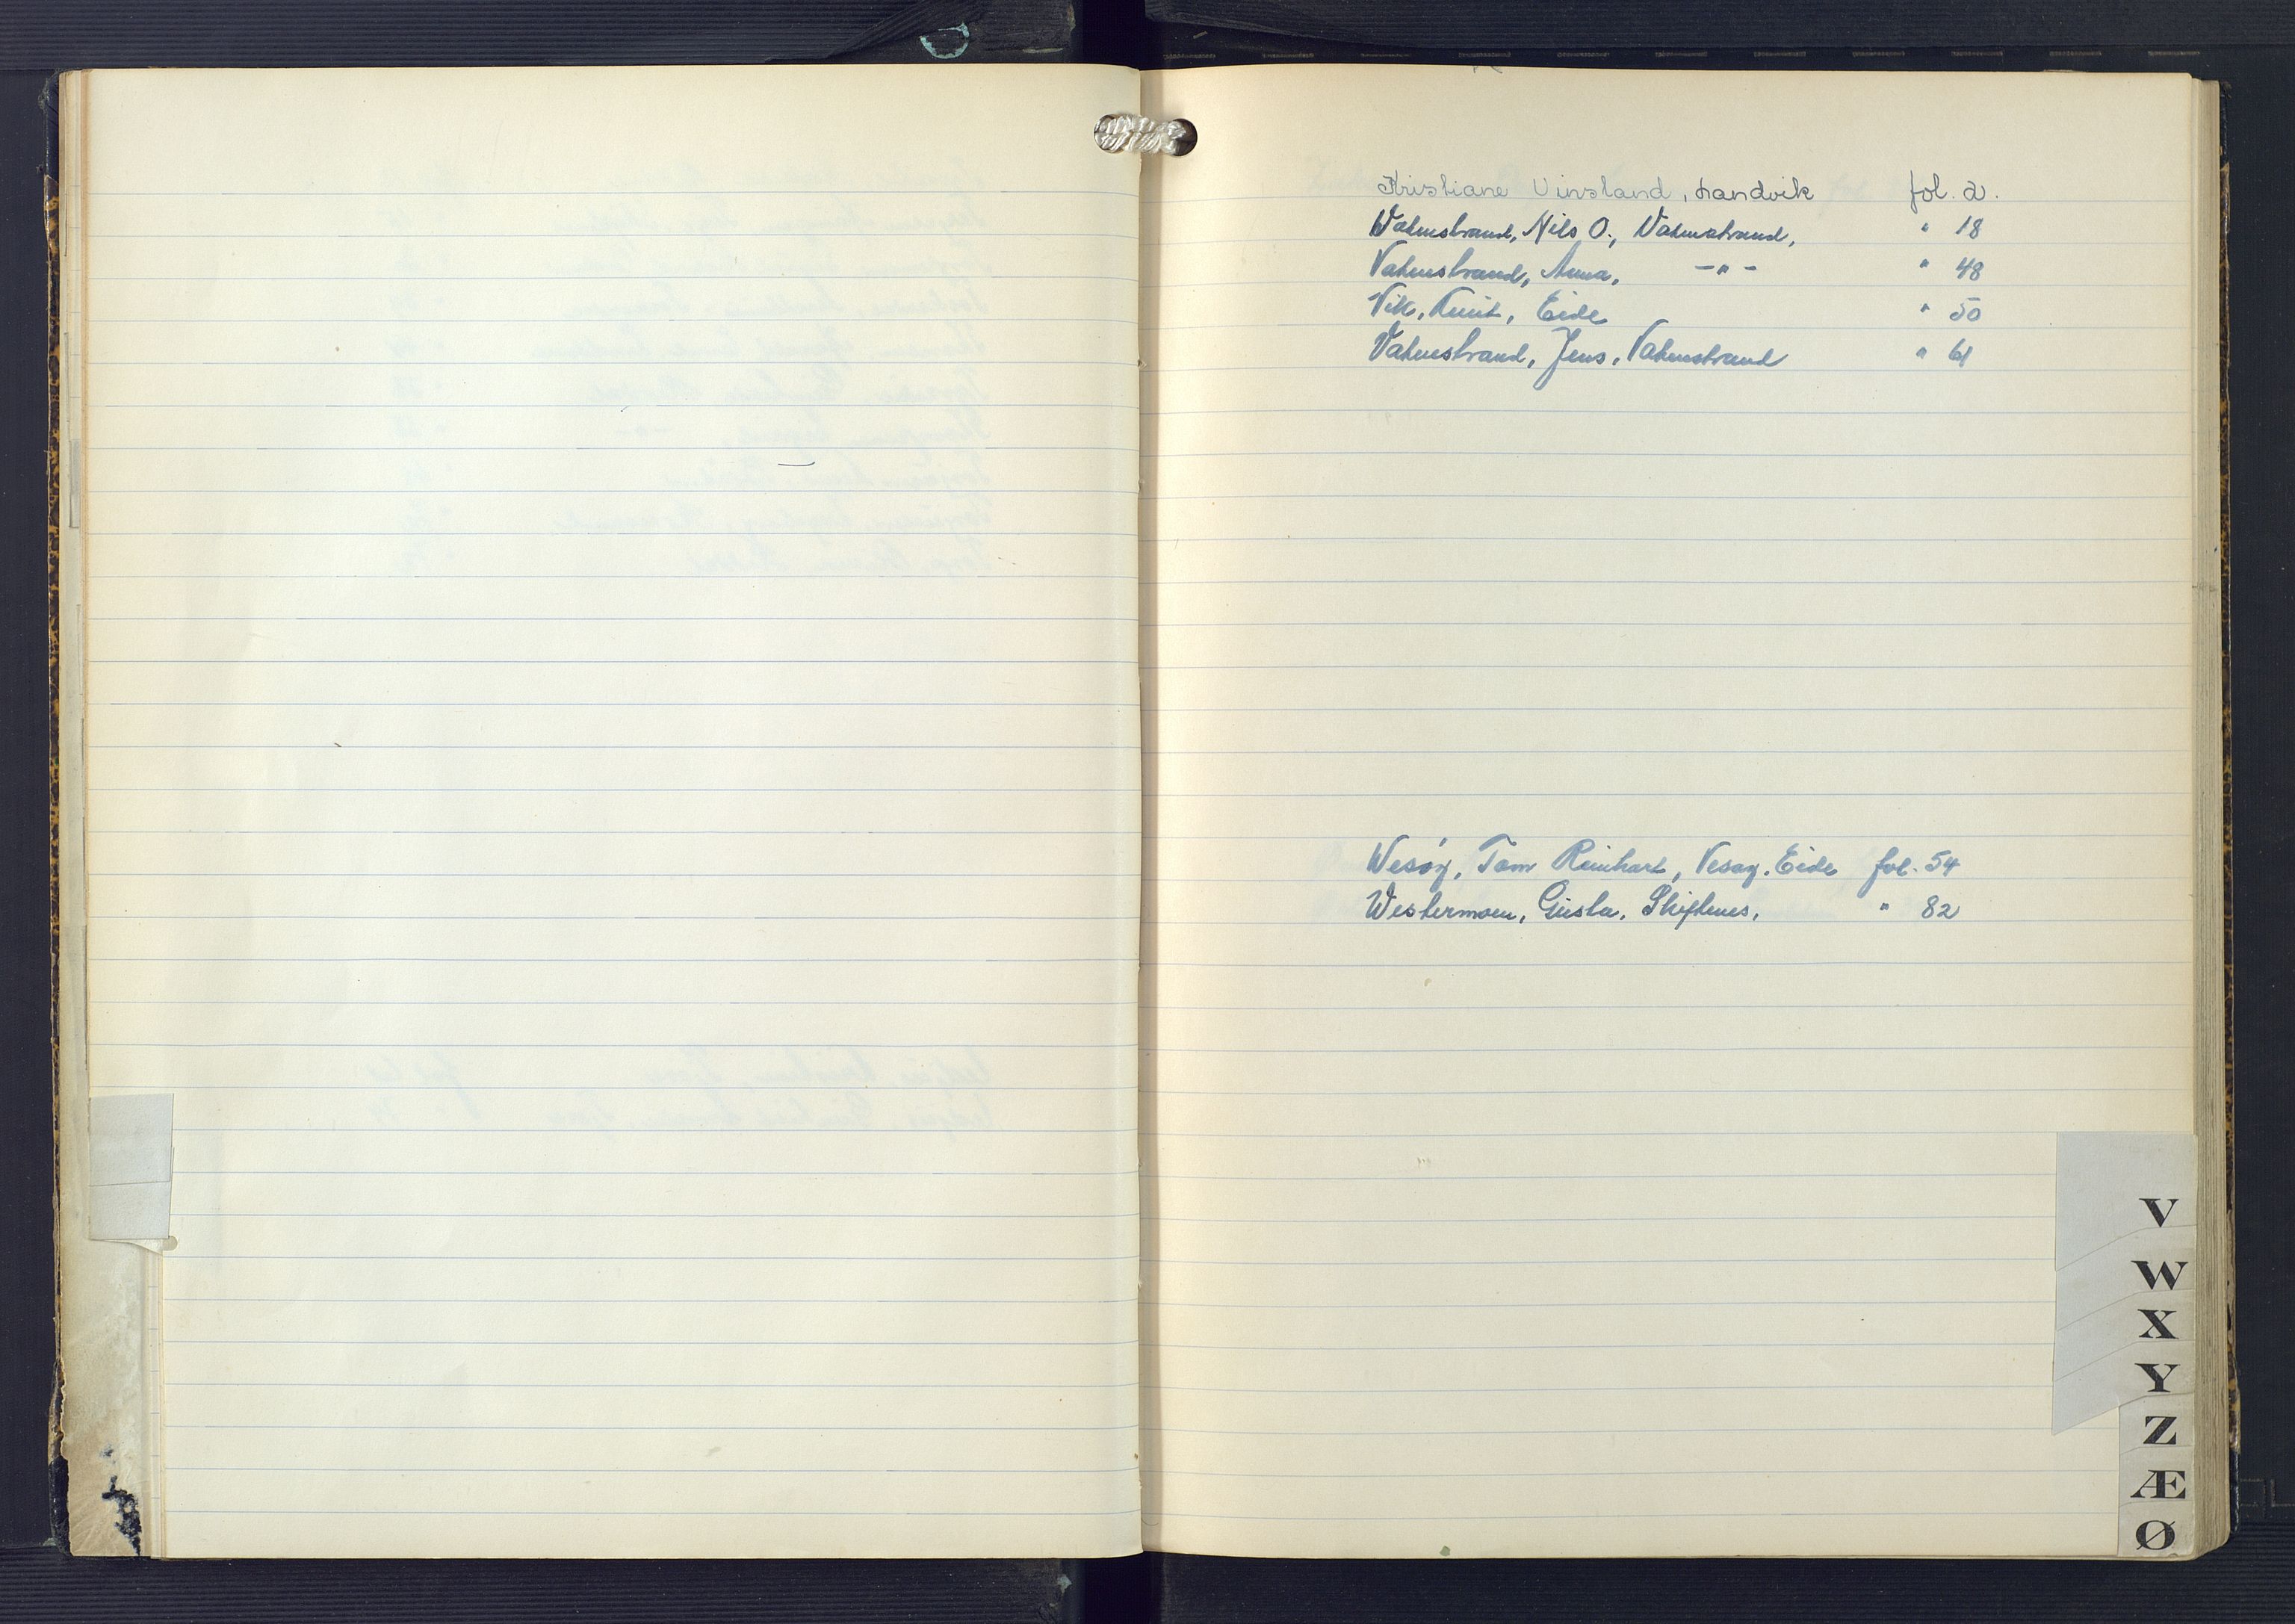 Kristiane Vinsland, Landvik fol. 2.
Vatnestrand, Nils O., Vatnestrand, " 18
Vatnestrand, Anna, -"- " 48
Vik, Knut, Eide " 50
Vatnestrand, Jens, Vatnestrand " 61
Wesøy, Tom Reinhart, Vesøy, Eide fol. 54
Westermoen, Gusta, Skiftenes, " 82
V
W
X
Y
Z
Æ
Ø